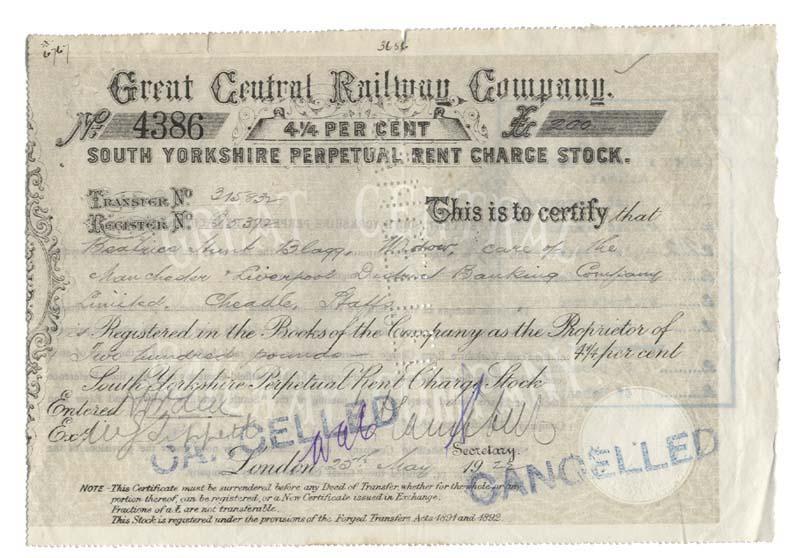 3656
Great Central Railway Company.
No. 4386 4¼ PER CENT £ 200
SOUTH YORKSHIRE PERPETUAL RENT CHARGE STOCK.
TRANSFER No. 315832
REGISTER No.
This is to certify that
Beatrice Blagg, Widow, care of the
Manchester & Liverpool District Banking Company
Limited. Cheadle, Staffs.
is Registered in the Books of the Company as the Proprietor of
Two hundred pounds — 4¼ per cent
South Yorkshire Perpetual Rent Charge Stock
Entered
Exd.
CANCELLED
Secretary.
London 25th May 192
CANCELLED
NOTE - This Certificate must be surrendered before any Deed of Transfer whether for the whole or any
portion thereof, can be registered, or a New Certificate issued in Exchange.
Fractions of a £ are not transferable.
This Stock is registered under the provisions of the Forged Transfers Acts 1891 and 1892.